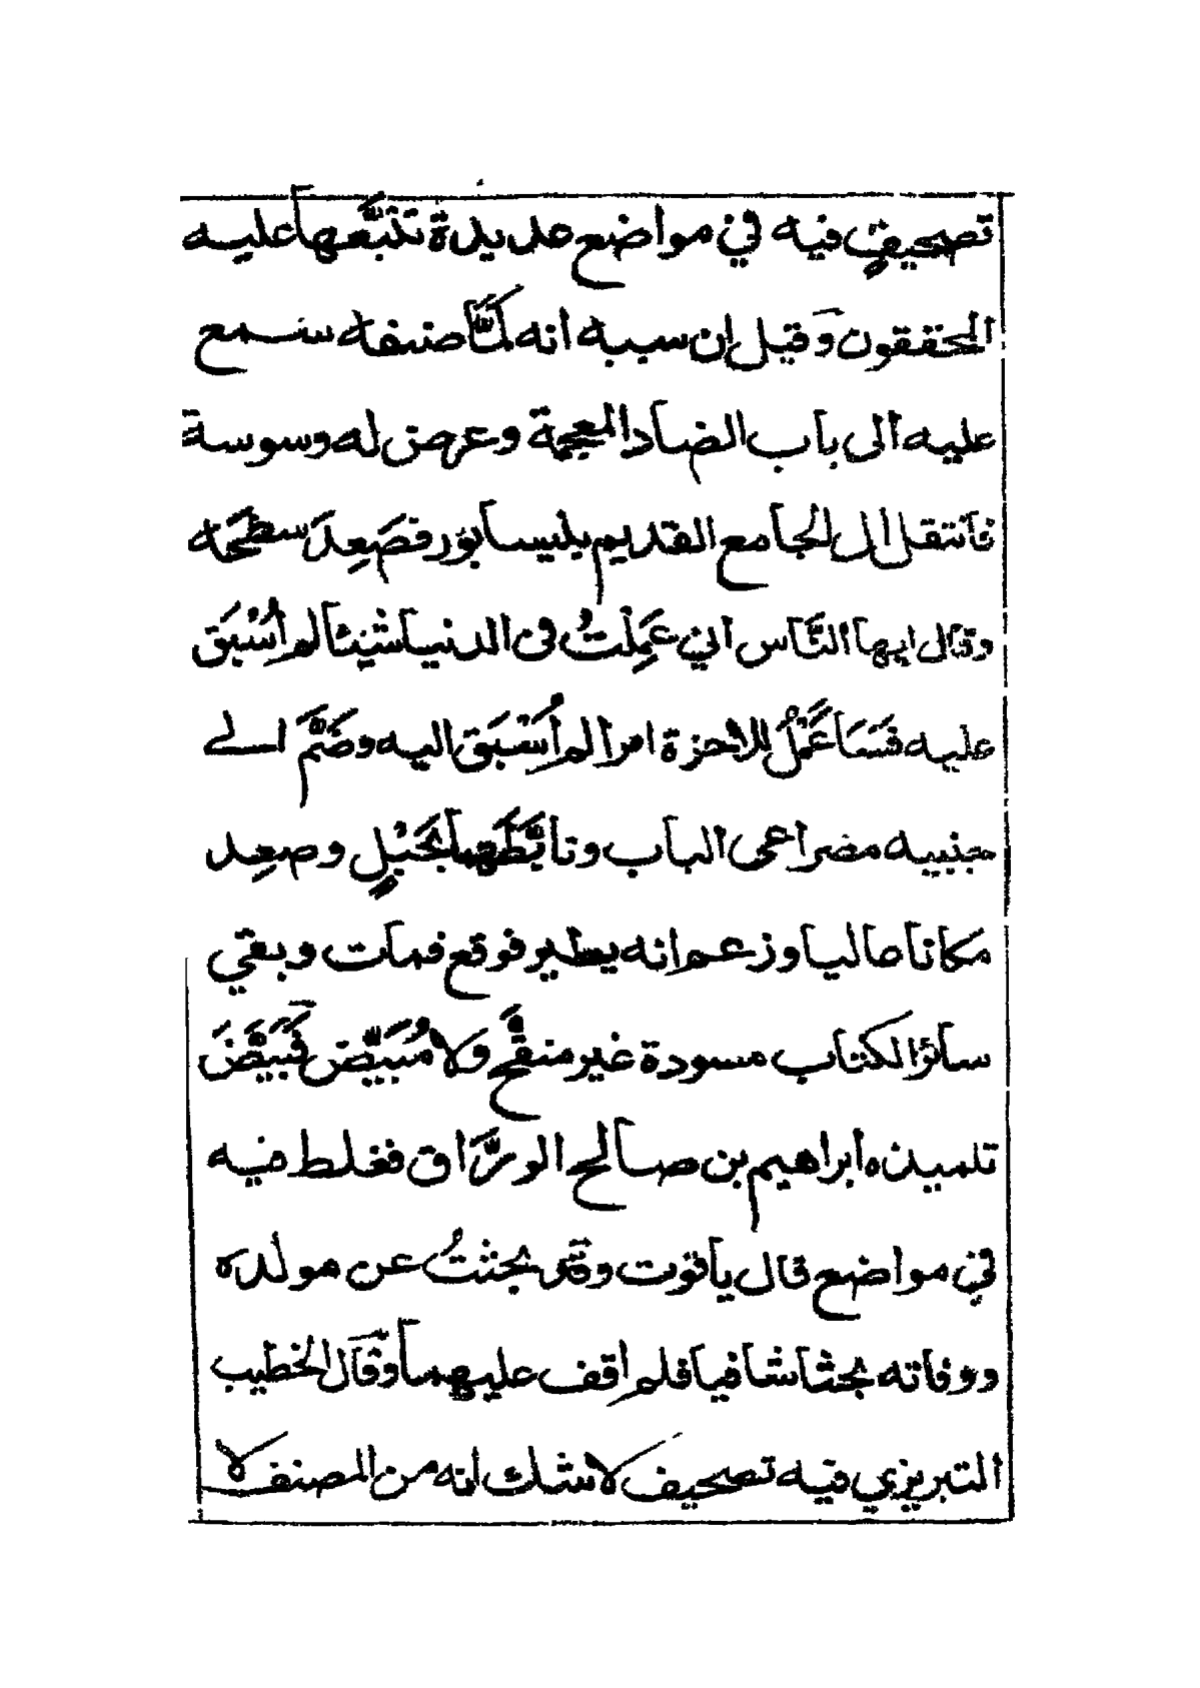 تصحيفٍ فيه في مواضع عديدة تتبَّعها عليه
المحققون وقيل إن سببه أنه لمَّا صنفه سمع
عليه الى باب الضاد المعجمة وعرض له وسوسة
فانتقل الى الجامع القديم بنيسابور فصَعِدَ سطحَه
وقال ايها النَّاس اني عَمِلْتُ في الدنيا شيئا لم أُسْبَق
عليه فسَأعَمْلُ للاخرة امرا لم أُسْبَق اليه وضَمَّ الى
جنبيه مصراعى الباب وتأبَّطَها بحَبْلٍ وصعِد
مكانا عاليا وزعم انه يطير فوقع فمات وبقي
سائر الكتاب مسودة غير منقَّح ولا مُبَيَّض فَبَيَّضَ
تلميذه ابراهيم بن صالح الورَّاق فغلط فيه
في مواضع قال ياقوت وقد بحثتُ عن مولده
ووفاته بحثا شافيا فلم اقف عليهما وقال الخطيب
التبريزي فيه تصحيف لا شك انه من المصنف لا